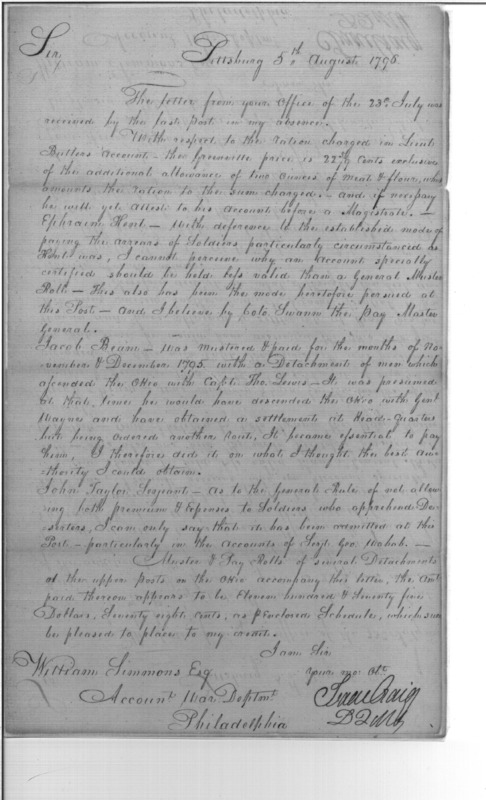 Sir,
Pittsburg 5th August 1796.
The letter from your Office of the 23d July was
received by the last post in my absence.
With respect to the ration charged in Lieut
Butlers account, the Greenville price is 22 cents exclusive
of the additional allowance of two ounces of meat & flour, which
amounts the ration to the sum charged. and if necessary
he will yet attest to his account before a Magistrate. —
Ephraim Hent. — With deference to the established mode of
paying the arrears of Soldiers particularly circumstanced as
Hent was, I cannot perceive why an account specially
certified should be held less valid than a General Muster
Roll — This also has been the mode heretofore persued at
this Post — and I believe by Colo. Swann the Pay Master
General.
Jacob Beam — Was mustered & paid for the months of No-
vember & December 1795. with a Detachment of men which
assended the Ohio with Capt. Tho. Lewis — It was presumed
at that time he would have descended the Ohio with Genl
Wayne and have obtained a settlement at Head-Quarters
but being ordered another Rout, It became essential to pay
him, I therefore did it on what I thought the best au-
thority I could obtain.
John Taylor Serjeant — as to the General Rule of not allow-
ing both premium & expenses to Soldiers who apprehend De-
serters, I can only say that it has been admitted at this
Post — particularly in the accounts of —
Muster & Pay Rolls of several Detachments
at the upper posts on the Ohio accompany this letter, the amt
paid thereon appears to be Eleven hundred & Seventy five
Dollars, Seventy eight Cents, as Enclosed Schedule, which
be pleased to place to my credit.
I am Sir
Your mo. Obt
William Simmons Esq
Isaac Craig
Account War Deptmt
D Q M G
Philadelphia